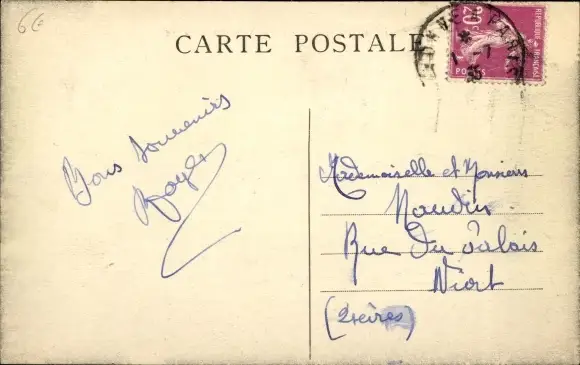 6€
CARTE POSTALE
20c
REPUBLIQUE FRANÇAISE
POSTES
PARIS
1 - 7
35
Bons souvenirs
Mademoiselle et Monsieur
Naudin
Rue Du Palais
Niort
(2 sèvres)